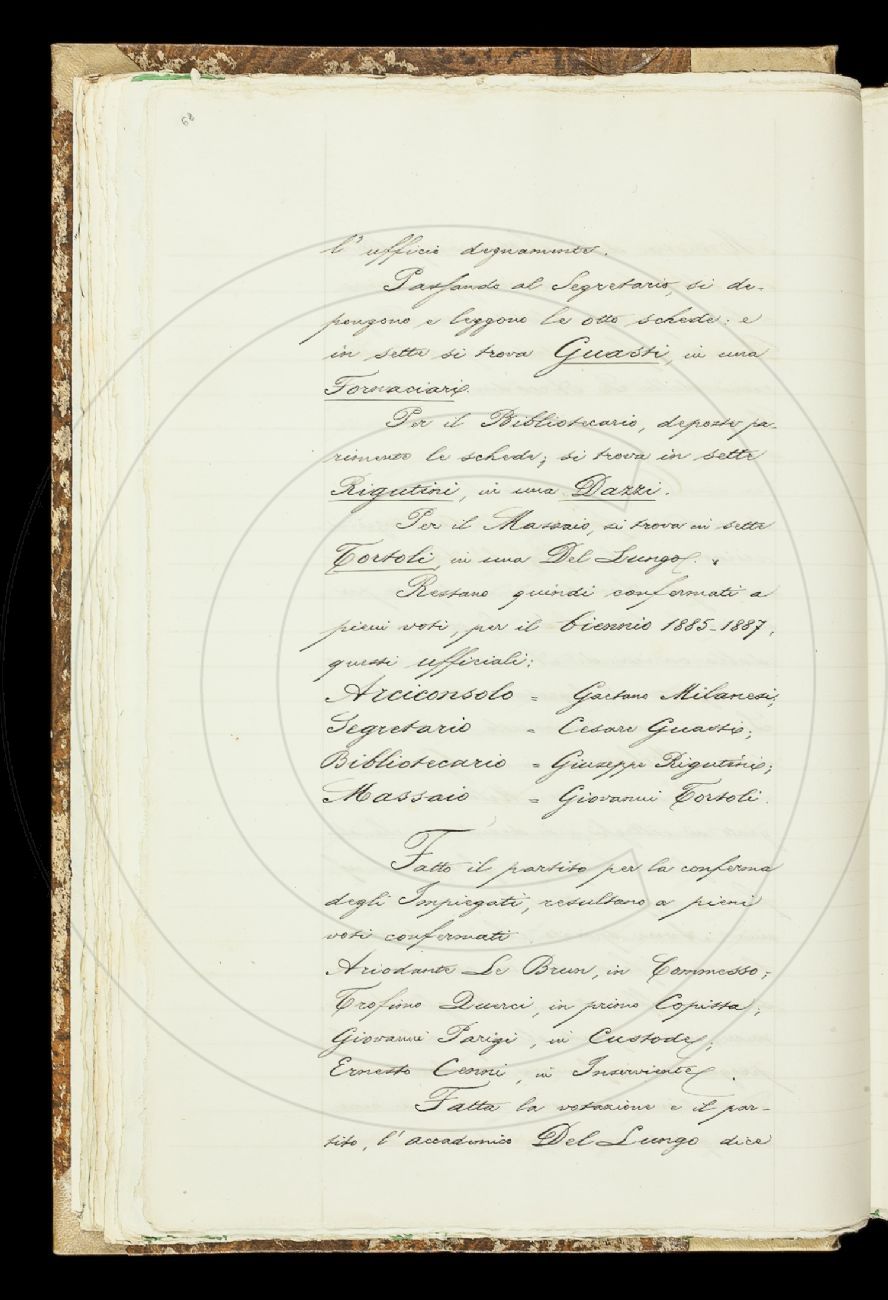 68
l' ufficio degnamente.
Passando al Segretario, si de-
pongono e leggono le otto schede: e
in sette si trova Guasti, in una
Fornaciari.
Per il Bibliotecario, deposte pa-
rimente le schede; si trova in sette
Rigutini, in una Dazzi.
Per il Massaio, si trova in sette
Tortoli, in una Del Lungo.
Restano quindi confermati a
pieni voti, per il biennio 1885-1887,
questi ufficiali:
Arciconsolo = Gaetano Milanesi;
Segretario = Cesare Guasti;
Bibliotecario = Giuseppe Rigutini;
Massaio = Giovanni Tortoli.
Fatto il partito per la conferma
degli Impiegati, resultano a pieni
voti confermati
Ariodante Le Brun, in Commesso;
Trofimo Querci, in primo Copista;
Giovanni Parigi, in Custode;
Ernesto Cenni, in Inserviente.
Fatta la votazione e il par-
tito, l' accademico Del Lungo dice